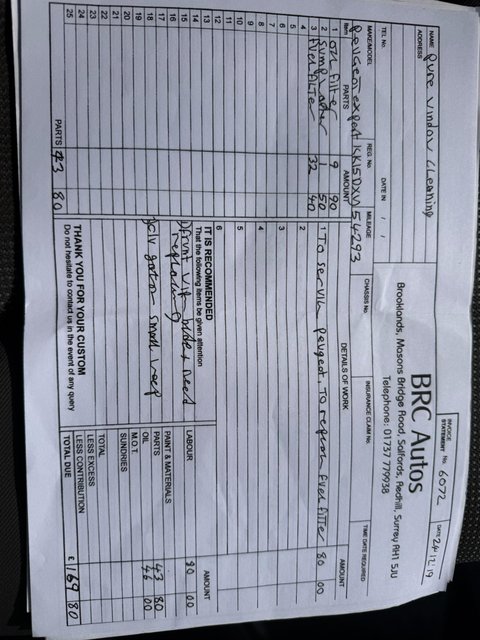 INVOICE
STATEMENT No. 6072 DATE 24/12/19
BRC Autos
Brooklands, Masons Bridge Road, Salfords, Redhill, Surrey RH1 5JU
Telephone: 01737 779938
NAME Pure window cleaning
ADDRESS
TEL No. DATE IN / /
MAKE/MODEL REG. No. MILEAGE CHASSIS No. INSURANCE CLAIM No. TIME DATE REQUIRED
Peugeot expert KK15DXV 54293
Item PARTS AMOUNT DETAILS OF WORK AMOUNT
1 oil filter 9 90 1 To service peugeot. To replace fuel filter 80 00
2 sump washer 1 50 2
3 Fuel filter 32 40 3
4 4
5 5
6 6
7
8
9
10
11
12
13 IT IS RECOMMENDED
14 That the following items be given attention LABOUR 80 00
15 PAINT & MATERIALS
16 replacing PARTS 43 80
17 OIL 46 00
18 M.O.T.
19 SUNDRIES
20 TOTAL
21
22 THANK YOU FOR YOUR CUSTOM
23 Do not hesitate to contact us in the event of any query LESS EXCESS
24 LESS CONTRIBUTION
25 PARTS 43 80 TOTAL DUE £169 80